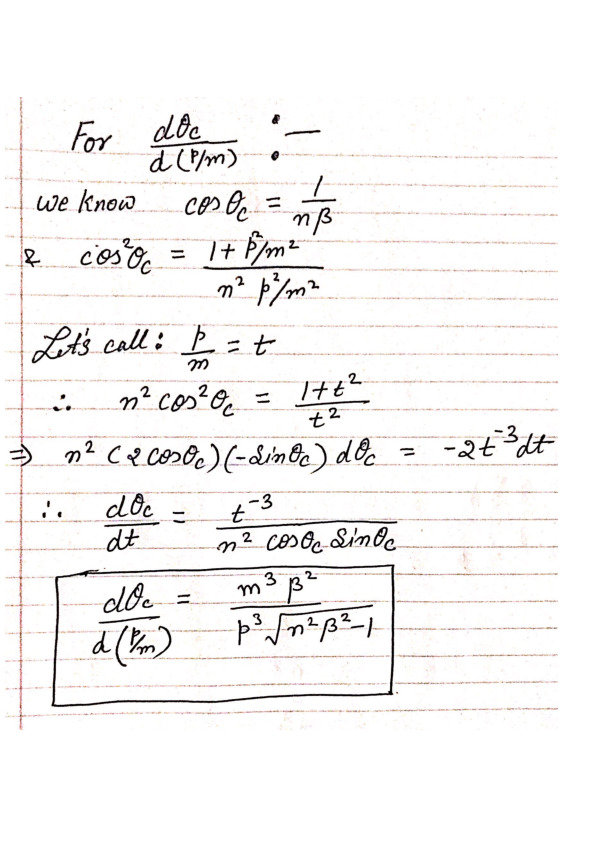 For dθc/d(p/m) :—
we know cosθc = 1/nβ
& cos²θc = (1+p²/m²)/(n² p²/m²)
Let's call: p/m = t
∴ n² cos²θc = (1+t²)/t²
⇒ n² (2cosθc)(-Sinθc) dθc = -2t⁻³dt
∴ dθc/dt = t⁻³/(n² cosθc Sinθc)
dθc/d(p/m) = m³ β²/(p³√(n²β²-1))